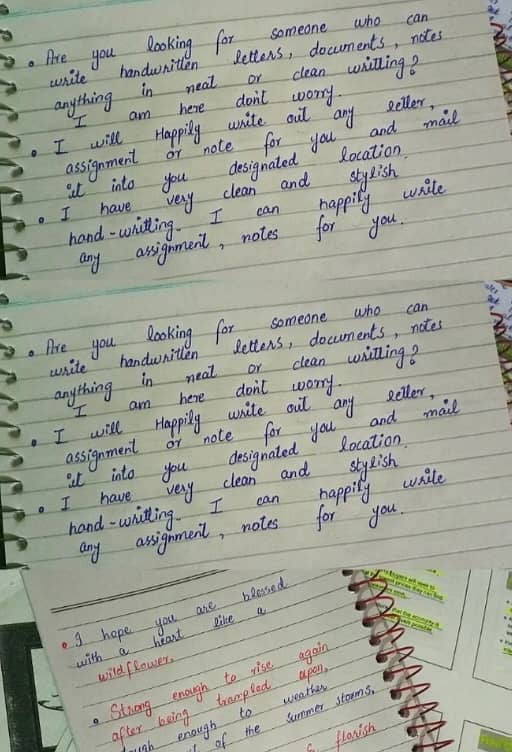 • Are you looking for someone who can
write handwritten letters, documents, notes
anything in neat or clean writting?
I am here don't worry.
• I will Happily write out any letter,
assignment or note for you and mail
it into you designated location.
• I have very clean and stylish
hand-writting. I can happily write
any assignment, notes for you.
• Are you looking for someone who can
write handwritten letters, documents, notes
anything in neat or clean writting?
I am here don't worry.
• I will Happily write out any letter,
assignment or note for you and mail
it into you designated location.
• I have very clean and stylish
hand-writting. I can happily write
any assignment, notes for you.
• I hope you are blessed
with a heart like a
wildflower.
• Strong enough to rise again
after being trampled upon,
enough to weather
of the summer storms,
florish